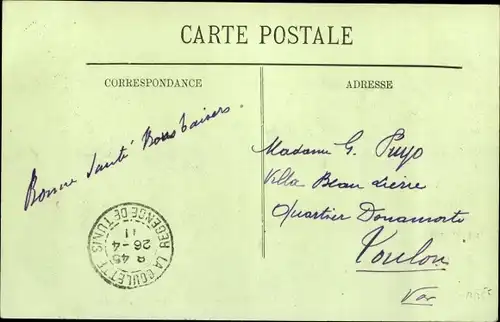 CARTE POSTALE
CORRESPONDANCE
ADRESSE
Bonne Santé Bons baisers.
Madame G. Puyo
Villa Beau
Quartier
Toulon
Var
LA GOULETTE
REGENCE DE TUNIS
8 45
26-4
11